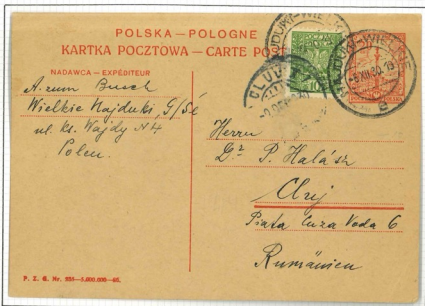 POLSKA — POLOGNE
KARTKA POCZTOWA — CARTE POST
NADAWCA — EXPÉDITEUR
Busch
Wielkie Hajduki, G/Śl
ul. Ks. Wajdy N 4
Polen
HAJDUKI-WIELKIE
CLUJ
10
Herrn
Dr P. Halász
Cluj
Piata Cuza Voda 6
Rumänien
P. Z. G. Nr.